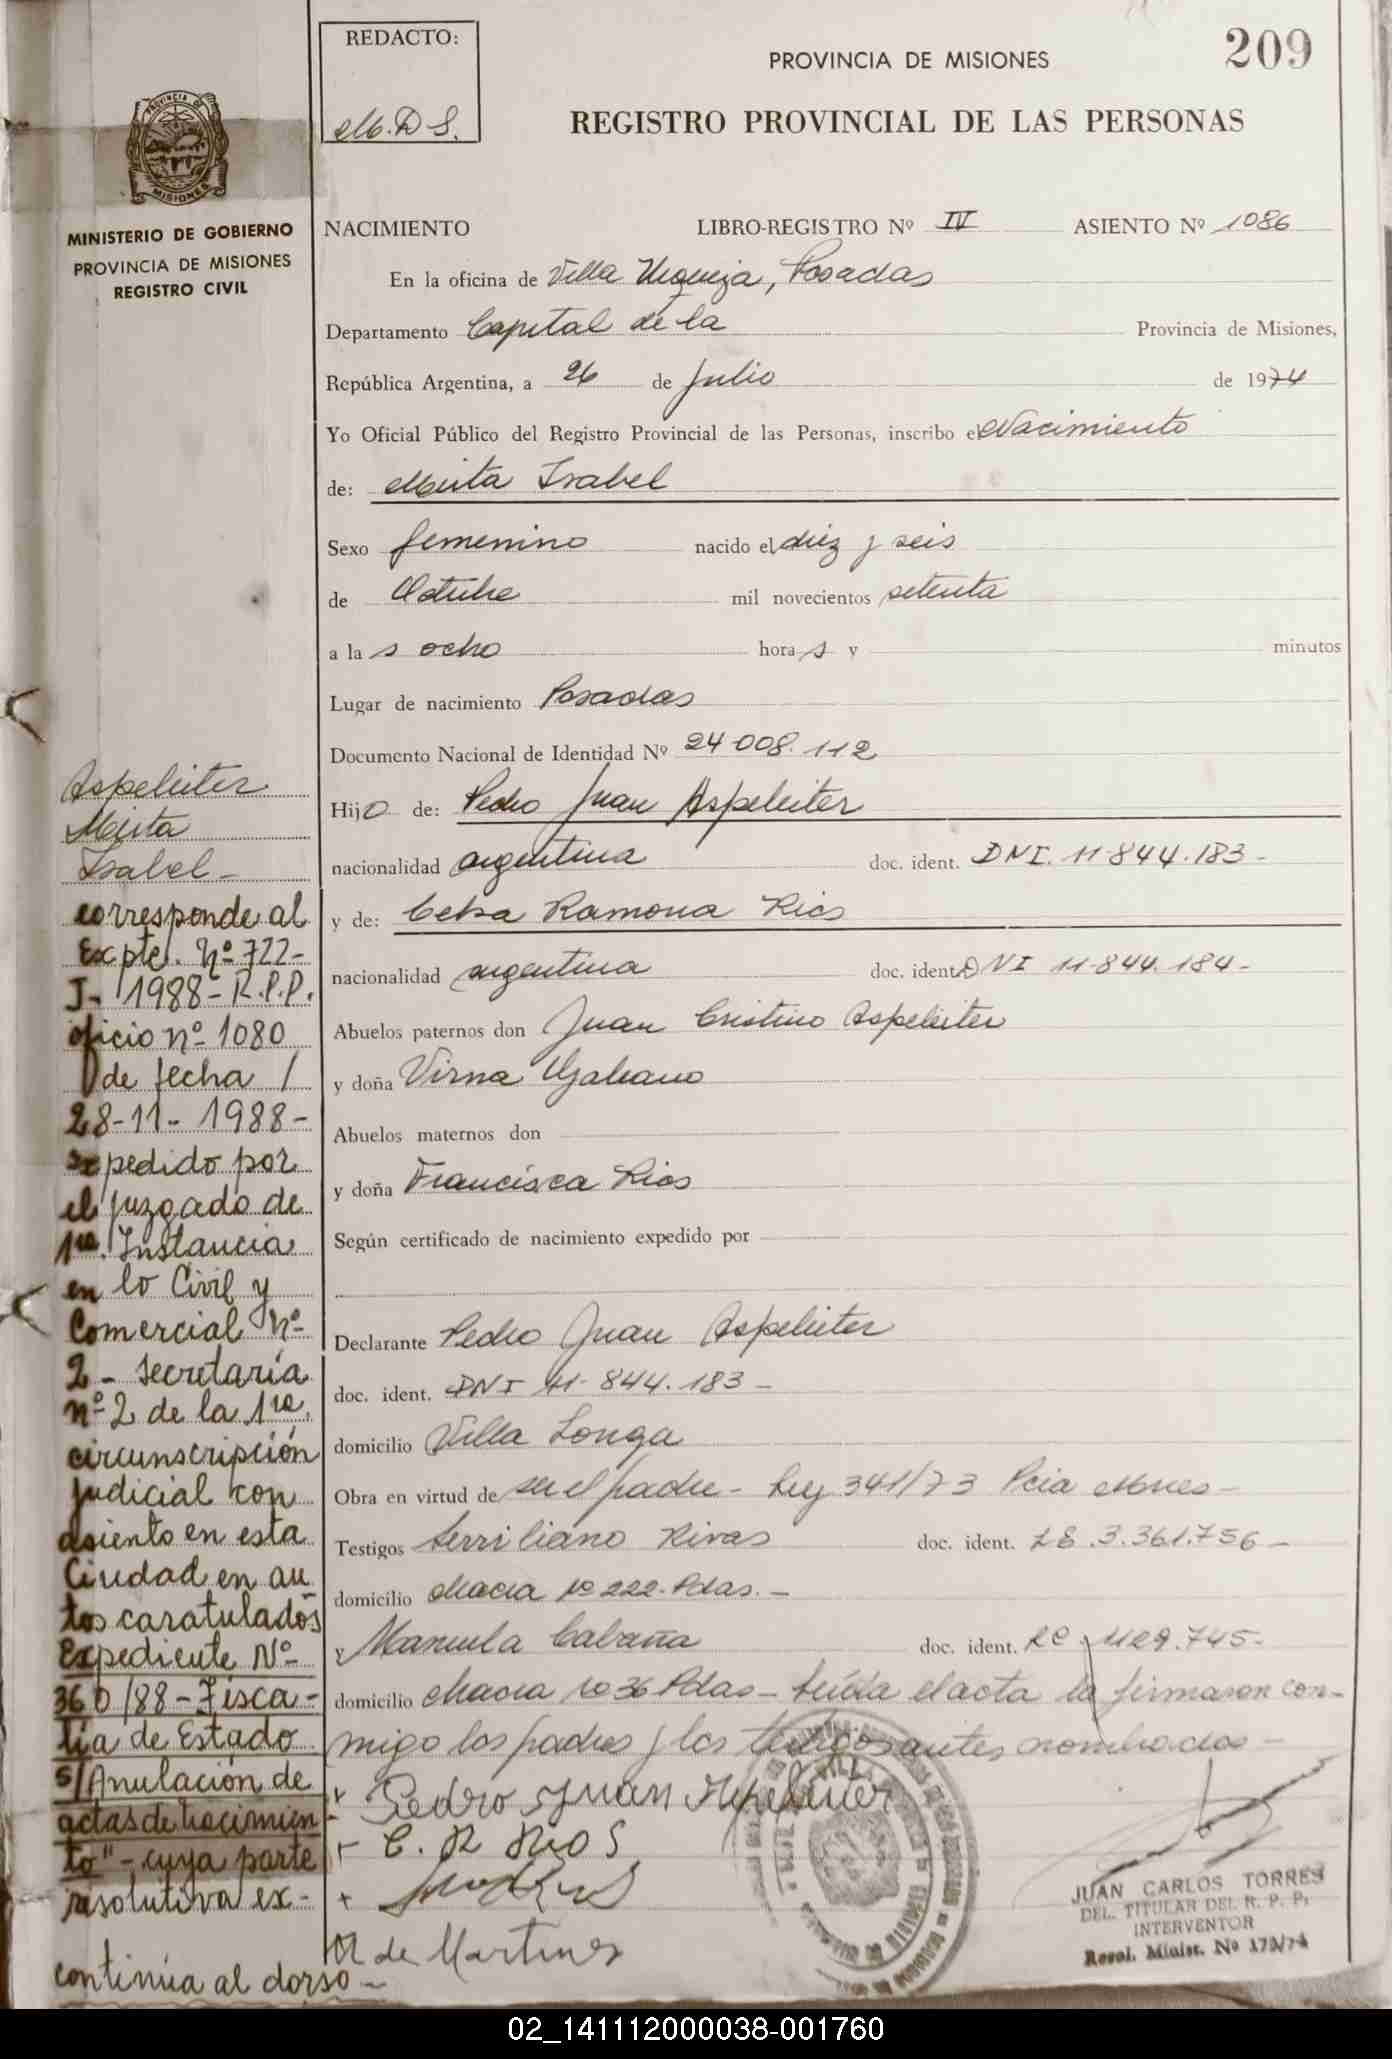 REDACTO:
M. D S.
PROVINCIA DE MISIONES
209
REGISTRO PROVINCIAL DE LAS PERSONAS
PROVINCIA DE
MISIONES
MINISTERIO DE GOBIERNO
PROVINCIA DE MISIONES
REGISTRO CIVIL
NACIMIENTO LIBRO-REGISTRO Nº IV ASIENTO Nº 1086
En la oficina de Villa Urquiza, Posadas
Departamento Capital de la Provincia de Misiones,
República Argentina, a 26 de Julio de 1974
Yo Oficial Público del Registro Provincial de las Personas, inscribo el Nacimiento
de: Mirta Isabel
Sexo femenino nacido el diez y seis
de Octubre mil novecientos setenta
a la s ocho hora s y minutos
Lugar de nacimiento Posadas
Documento Nacional de Identidad Nº 24 008.112
Hijo de: Pedro Juan Aspeleiter
nacionalidad argentina doc. ident. DNI. 11-844.183-
y de: Celsa Ramona Rios
nacionalidad argentina doc. ident. DNI 11-844.184-
Abuelos paternos don Juan Cristino Aspeleiter
y doña Virna
Abuelos maternos don
y doña Francisca Rios
Según certificado de nacimiento expedido por
Declarante Pedro Juan Aspeleiter
doc. ident. DNI 11-844.183-
domicilio Villa Longa
Obra en virtud de ser el padre- Ley 341/73 Pcia
Testigos Rivas doc. ident. 3.361.756-
domicilio chacra nº 222-Pdas.-
y Manuela Cabaña doc. ident. 1129.745-
domicilio chacra nº 36 Pdas- leída el acta la firmaron con-
migo los padres y los testigos antes nombrados-
+ Pedro Juan Aspeleiter
+ C. R RIOS
+
de Martinez
JUAN CARLOS TORRES
DEL. TITULAR DEL R. P. P.
INTERVENTOR
Resol. Minist. Nº 173/74
Aspeleiter
Mirta
Isabel-
corresponde al
Expte. Nº 722-
J- 1988-R.P.P.
oficio nº 1080
de fecha /
28-11-1988-
expedido por
el juzgado de
1ra. Instancia
en lo Civil y
Comercial Nº
2- secretaría
nº 2 de la 1ra.
circunscripción
judicial con
asiento en esta
Ciudad en au
tos caratulados
Expediente Nº
360/88-Fisca-
lía de Estado
s/Anulación de
actas de nacimien
to"- cuya parte
resolutiva ex-
continúa al dorso-
02_141112000038-001760